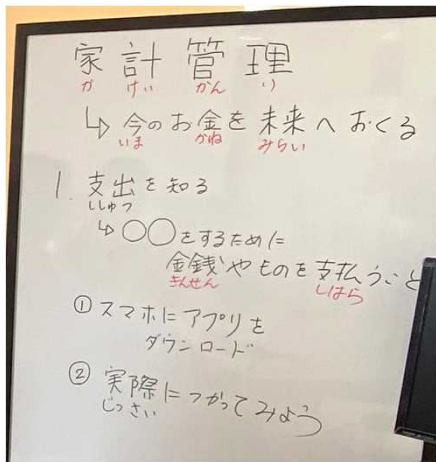 家計管理
か けい かん り
↳今のお金を未来へおくる
いま かね みらい
1. 支出を知る
ししゅつ
↳○○をするために
金銭やものを支払うこと
きんせん しはら
① スマホにアプリを
ダウンロード
② 実際につかってみよう
じっさい